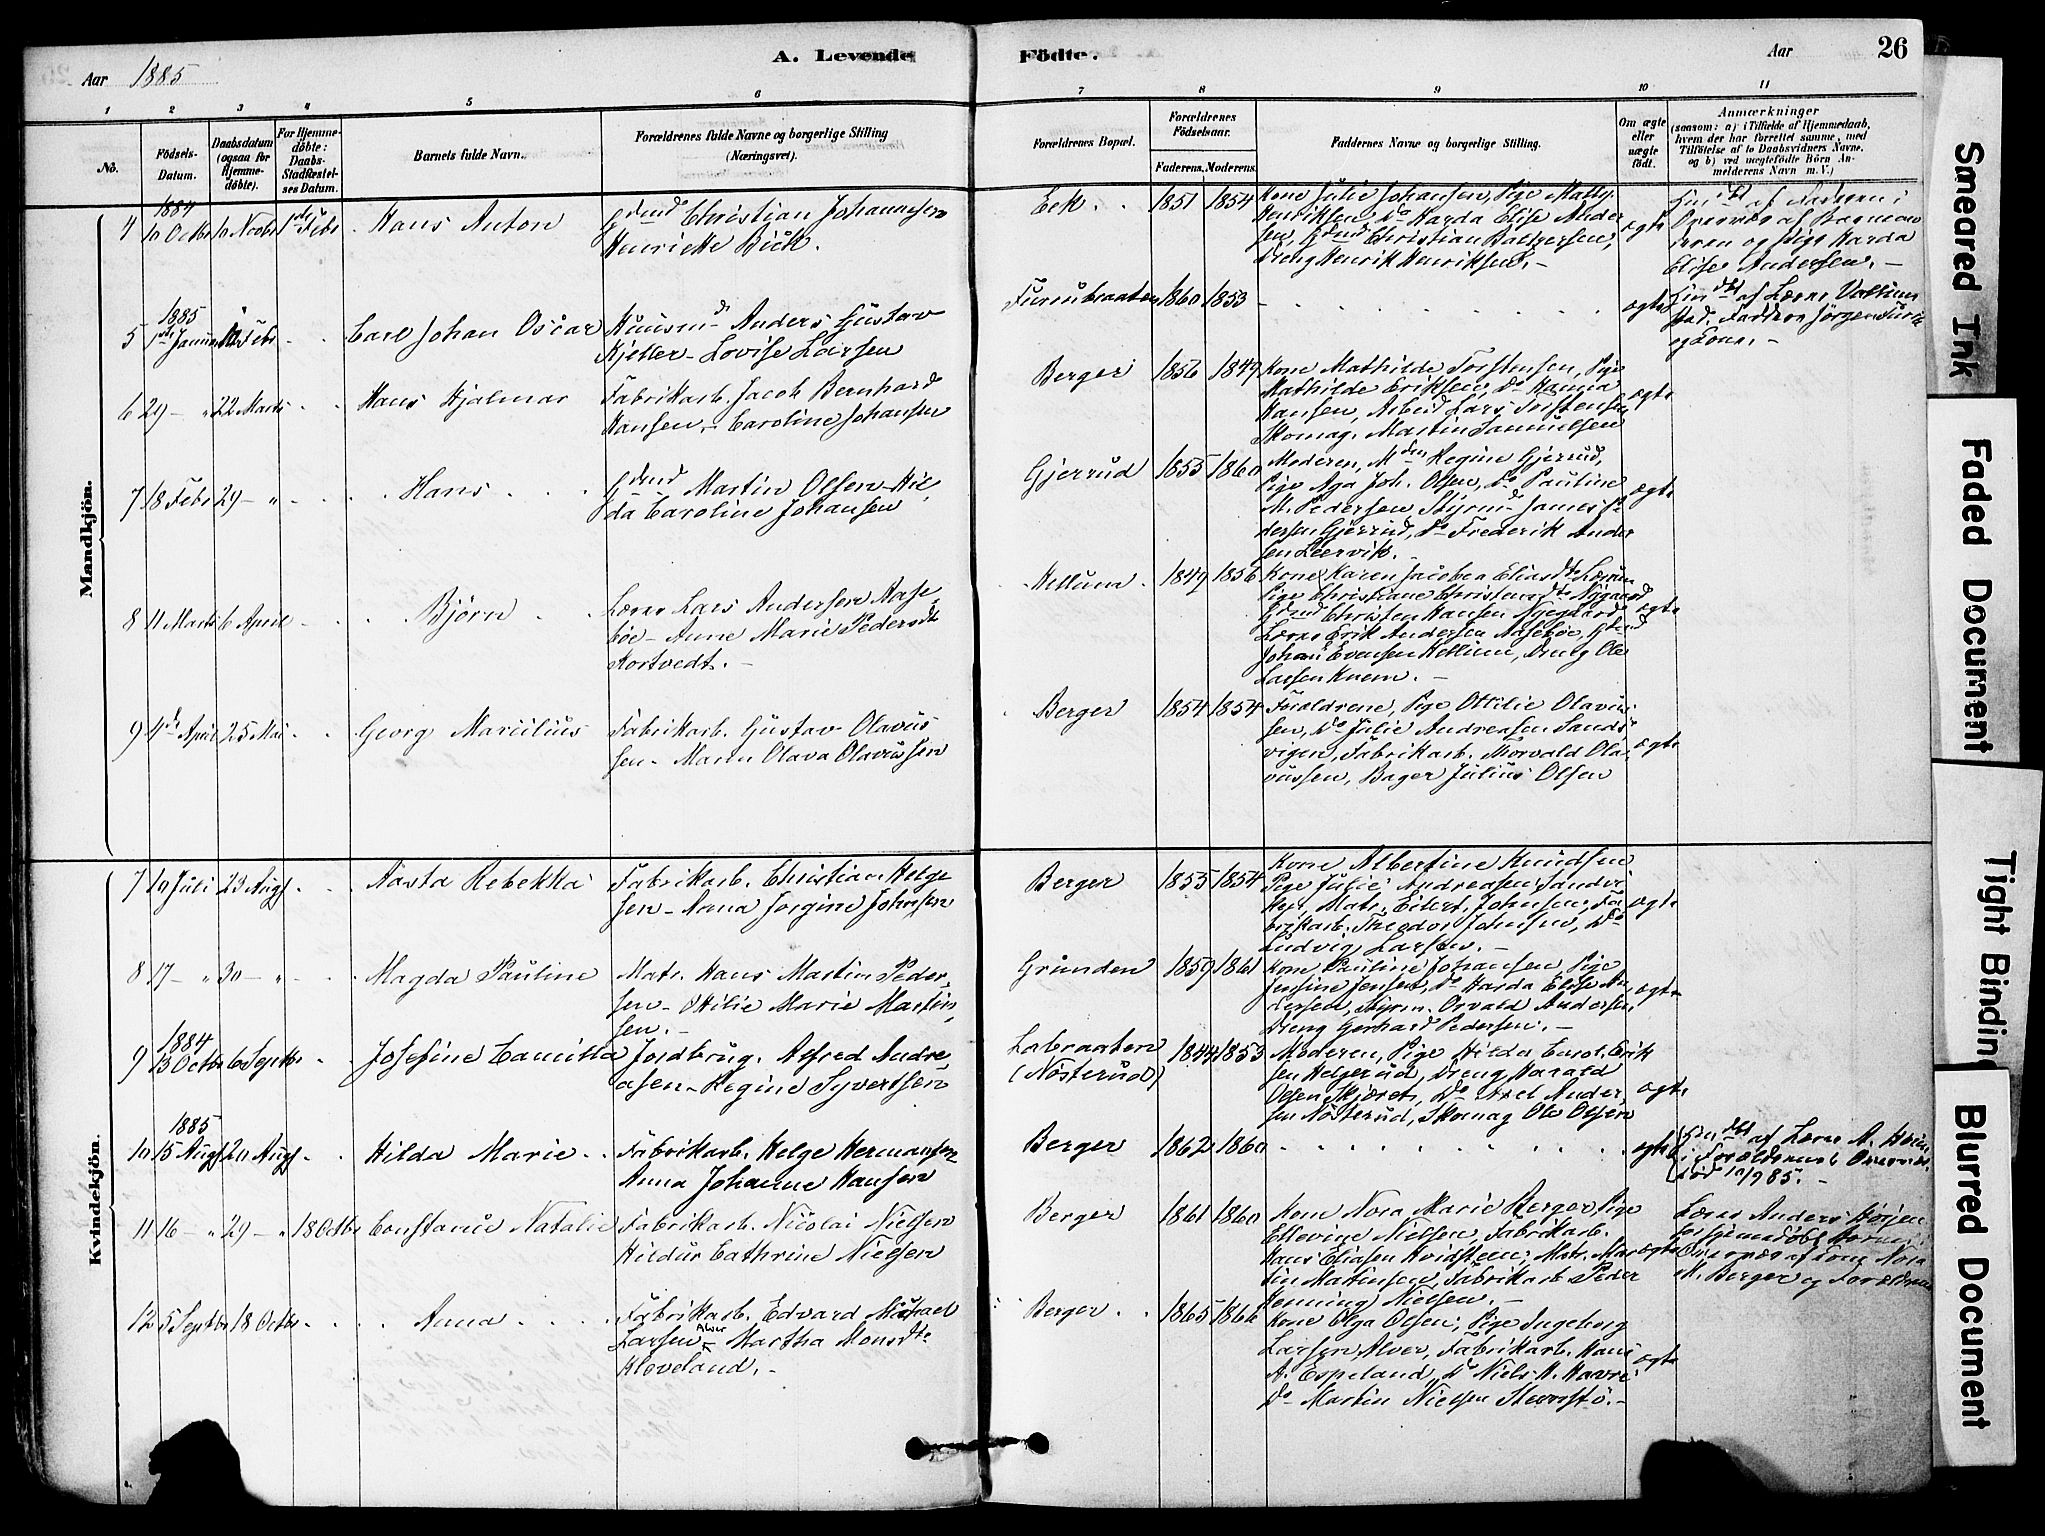 Aar 1885
A. Levende Födte.
Aar
26
1 2 3 4 5 6 7 8 9 10 11
No.
Födsels-Datum.
Daabsdatum (ogsaa for Hjemmedöbte).
For Hjemmedöbte: Daabs-Stadfæstelses Datum.
Barnets fulde Navn.
Forældrenes fulde Navne og borgerlige Stilling (Næringsvei).
Forældrenes Bopæl.
Forældrenes Födselsaar.
Faderens. Moderens.
Faddernes Navne og borgerlige Stilling.
Om ægte eller uægte födt.
Anmærkninger
(saasom: a) i Tilfælde af Hjemmedaab,
hvem der har forrettet samme, med
Tilföielse af to Daabsvidners Navne.
og b) ved uægtefödte Börn An-
melderens Navn m. V.)
Mandkjön.
1884
4 10 Octbr 10 Novbr 1ste Febr Hans Anton
Gdmd Christian Johannesen
Henriette Bück.
Eek 1851 1854
Kone Julie Johansen, Pige Math.
Henriksen, Do Harda Elise Ander
sen, Gdmd Christian Baltzersen,
Dreng Henrik Henriksen.-
ægte
og Pige Harda
Elise Andersen.-
1885
5 1ste Januar Febr Carl Johan Oscar
Huusmd Anders Gustav
Kjeller- Lovise Larsen
Furrubraaten 1860 1853
ægte
6 29 - " 22 Marts Hans Hjalmar
Fabrikarb. Jacob Bernhard
Hansen,- Caroline Johansen
Berger 1856 1849
Kone Mathilde Torstensen, Pige
Mathilde Eriksen, Do Hanna
Hansen, Arbeid Lars Torstensen
Skomag. Martin Samuelsen
ægte
7 18 Febr 29 - " Hans
Gdmd Martin Olsen- Hil,
da Caroline Johansen
Gjerrud 1855 1860
Moderen, Mden Regine Gjerrud,
Pige Aga Joh. Olsen, Do Pauline
M. Pedersen Styrmd James Pe
dersen Gjerrud, Do Frederik Ander
sen Leervik.
ægte
8 11 Marts 6 April Björn
Lærer Lars Andersen Aase,
böe- Anne Marie Pedersdt
Kortvedt.-
Hellum 1849 1856
Kone Karen Jacobea Eliasdt
Pige Christiane Christensdt Nygaard
Gdmd Christen Hansen Nyegaard
Lærer Erik Andersen Aaseböe, Gdmd
Johan Evensen Hellum, Dreng Ole
Larsen Knem.-
ægte
9 4de April 25 Mai Georg Marcilius
Fabrikarb. Gustav Olavus
sen- Maren Olava Olavussen
Berger 1854 1854
Foraldrene, Pige Ottilie Olavus
sen, Do Julie Andreasen Sands
vigen, Fabrikarb. Thorvald Ola,
vussen, Bager Julius Olsen
ægte
Kvindekjön.
7 19 Juli 23 Augs Aasta Rebekka
Fabrikarb. Christian Helge
sen- Anna Jorgine Johnsen
Berger 1855 1854
Kone Albertine Knudsen
Pige Julie Andreasen Sandvi
ken, Matr. Eilert Johnsen, Fa
brikarb. Theodor Johnsen, Do
Ludvig Larsen.-
ægte
8 17 - " 30 - " Magda Pauline
Matr. Hans Martin Peder,
sen- Otilie Marie Martin,
sen.-
Grunden 1859 1861
Kone Pauline Johansen, Pige
Jensine Jensen, Do Harda Elise An
dersen, Styrm. Osvald Andersen
Dreng Gerhard Pedersen.-
ægte
1884
9 13 Octbr 6 Septbr Josefine Camilla
Jordbrug. Alfred Andre
asen- Regine Syvertsen
Labraaten (Nösterud) 1844 1853
Moderen, Pige Hilda Carol. Erik
sen Helgerud, Dreng Harald
Olsen Skjæret, Do Axel Ander,
sen Nösterud, Skomag Ole Olsen
ægte
1885
10 15 Augs 20 Augs Hilda Marie
Fabrikarb. Helge Hermansen
Anna Johanne Hansen
Berger 1862 1860
ægte
Hmdbt af Lærer A. Höien
i Forældrenes Overvær
död 10/9 85.-
11 16 - " 29 - " 18 Octbr Constance Natalie
Fabrikarb. Nicolai Nielsen
Hildur Cathrine Nielsen
Berger 1861 1860
Kone Nora Marie Berger, Pige
Ellevine Nielsen, Fabrikarb.
Hans Eliasen Hvidsteen, Matr. Mar
tin Martinsen, Fabrikarb. Peder
Henning Nielsen.-
ægte
Lærer Anders Höijen
har hjemmedöbt Barnet i
Overvær af Kone Nora
M. Berger og Forældrene
12 5 Septbr 18 Octbr Anna
Fabrikarb. Edvard Michael
Larsen Alver- Martha Monsdtr
Kleveland.-
Berger 1865 1862
Kone Olga Olsen, Pige Ingeborg
Larsen Alver, Fabrikarb. Hans
A. Espeland, Do Niels H. Havre
Do Martin Nielsen Steorstö.-
ægte
Smeared Ink
Faded Document
Tight Binding
Blurred Document